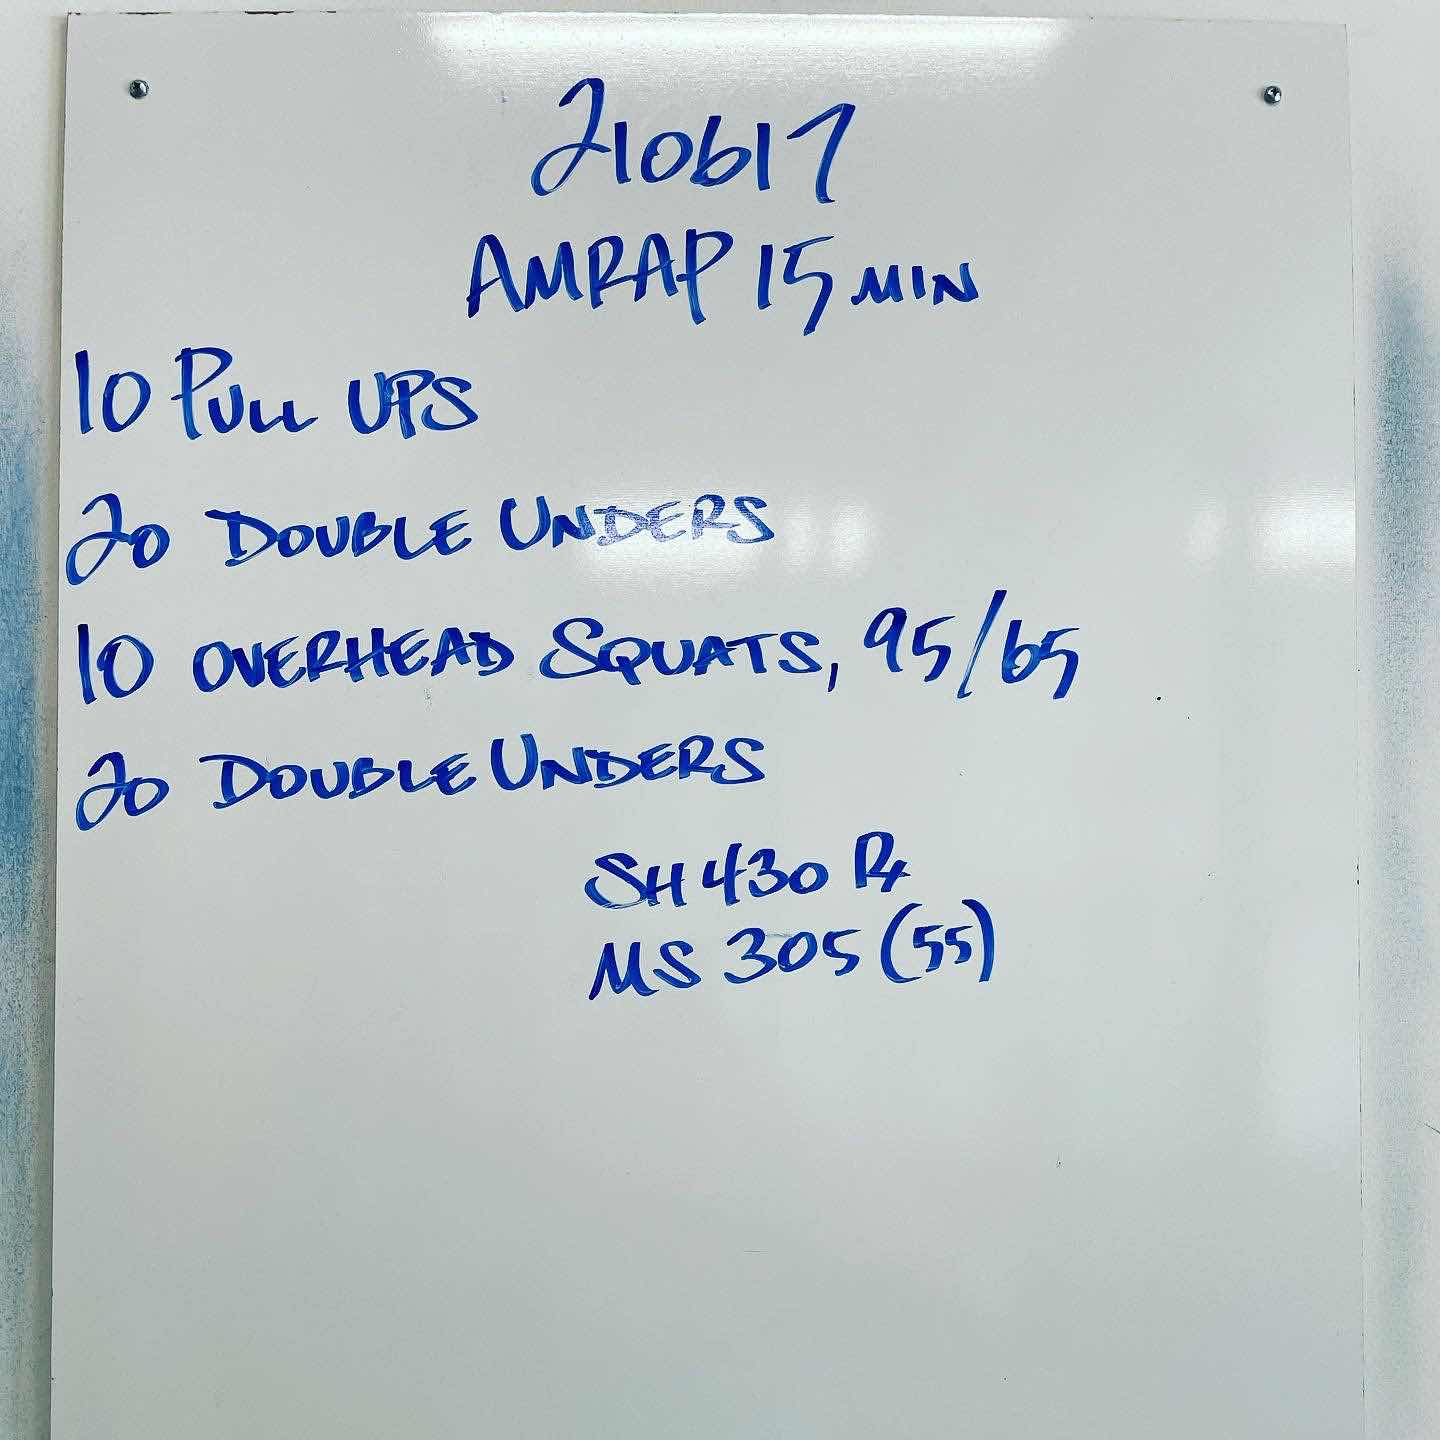 210617
AMRAP 15 MIN
10 PULL UPS
20 DOUBLE UNDERS
10 OVERHEAD SQUATS, 95/65
20 DOUBLE UNDERS
SH 430 Rx
MS 305 (55)